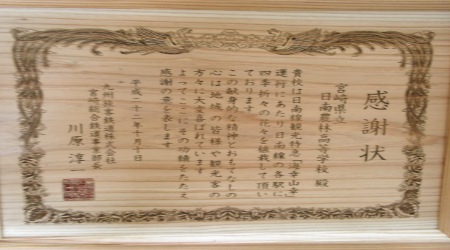 感謝状
宮崎県立
日南農林高等学校 殿
貴校は日南線観光特急「海幸山幸」
運行にあたり日南線の各駅に
四季折々の花々を植栽して頂い
ております
この献身的な精神とおもてなしの
心は地域の皆様や観光客の
方々に大変喜ばれています
よってここにその功績をたたえ
感謝の意を表します
平成二十二年十月十日
九州旅客鉄道株式会社
宮崎総合鉄道事業部長
川原 淳一